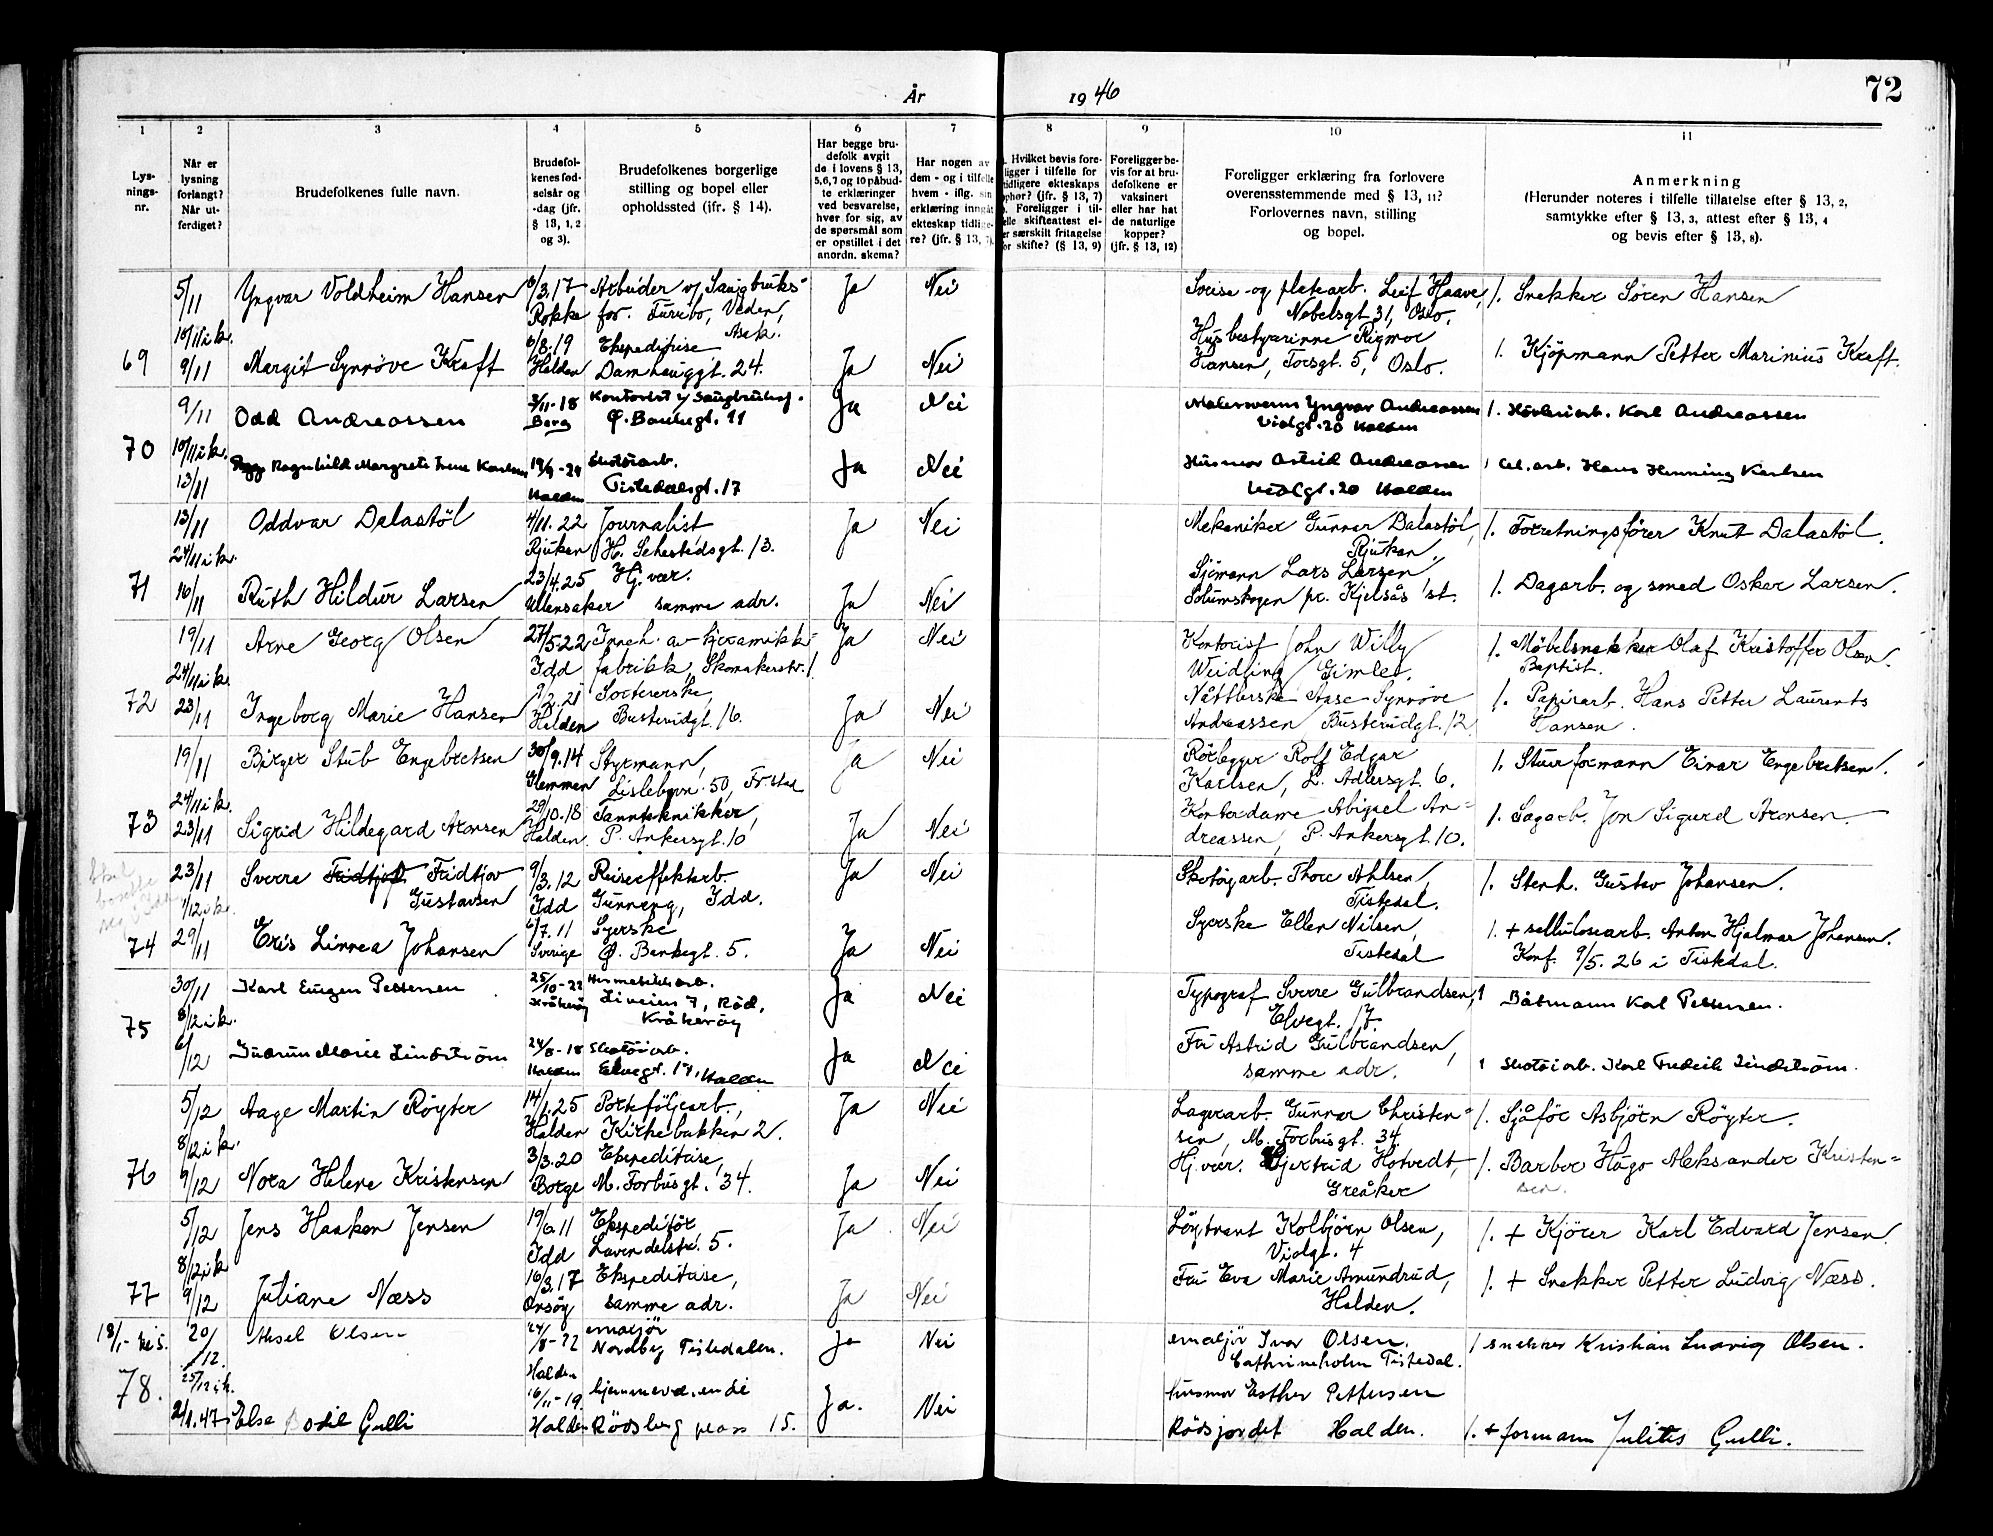 År 1946
72
1 2 3 4 5 6 7 8 9 10 11
Lys-
nings-
nr.
Når er
lysning
forlangt?
Når ut-
ferdiget?
Brudefolkenes fulle navn.
Brudefol-
kenes fød-
selsår og
-dag (jfr.
§ 13, 1, 2
og 3).
Brudefolkenes borgerlige
stilling og bopel eller
opholdssted (jfr. § 14).
Har begge bru-
defolk avgit
de i lovens § 13,
5, 6, 7 og 10 påbud-
te erklæringer
ved besvarelse,
hver for sig, av
de spørsmål som
er opstillet i det
anordn. skema?
Har nogen av
dem - og i tilfelle
hvem - iflg. sin
erklæring inngåt
ekteskap tidlige-
re? (jfr. § 13, 7).
Hvilket bevis fore-
ligger i tilfelle for
tidligere ekteskaps
ophør? (jfr. § 13, 7)
Foreligger i til-
felle skifteattest el-
er særskilt fritagelse
for skifte? (§ 13, 9)
Foreligger be-
vis for at bru-
defolkene er
vaksinert
eller har hat
de naturlige
kopper?
(jfr. § 13, 12)
Foreligger erklæring fra forlovere
overensstemmende med § 13, 11?
Forlovernes navn, stilling
og bopel.
Anmerkning
(Herunder noteres i tilfelle tillatelse efter § 13, 2,
samtykke efter § 13, 3, attest efter § 13, 4
og bevis efter § 13, 8).
5/11 Yngvar Voldheim Hansen 6/3.17 Arbeider v/ Saugbruks- Ja Nei og platearb. Leif Haave, /. Snekker Sören Hansen
10/11 i k. Rokke for. Furubo, Veden, Nobelsgt 31, Oslo.
Asak. Husbestyrerinne Rigmor
69 9/11 Margit Synnöve Kraft 6/8.19 Ekspeditrise Ja Nei Hansen, Torsgt. 5, Oslo. /. Kjöpmann Petter Marinius Kraft.
Halden Damhauggt. 24.
9/11 Odd Andreassen 3/11-18 Kontorist v/ Saugbruksf. Ja Nei Malersvenn Yngvar Andreassen /. Karl Andreassen
Berg Ø. Bankegt. 11 Vidgt. 20 Halden
70 10/11 i k. Ragnhild Margrete Irene Karlsen Skotöiarb. Ja Nei Husmor Astrid Andreassen Cel. arb. Hans Henning Karlsen
13/11 Halden Tistedalsgt. 17 Vidlgt. 20 Halden
13/11 Oddvar Dalastöl 4/11.22 Journalist Ja Nei Mekaniker Gunnar Dalastöl, /. Forretningsförer Knut Dalastöl.
24/11 i k. Rjukan H. Sehestedsgt. 13. Rjukan.
71 16/11 Ruth Hildur Larsen 23/4.25 Hj. vær. Ja Nei Sjömann Lars Larsen /. Dagarb. og smed Oskar Larsen.
Ullensaker samme adr. Solumskogen pr. Kjelsås st.
19/11 Arne Georg Olsen 27/5.22 Inneh. av keramikk- Ja Nei Kontorist John Willy /. Möbelsnekker Olaf Kristoffer Olsen.
24/11 i k. Idd fabrikk, Skomakerstr. 1 Weidling Gimle. Baptist.
72 23/11 Ingeborg Marie Hansen 2.21 Sorterske, Ja Nei Nåtlerske Aase Synnöve /. Papirarb. Hans Petter Laurents
Halden Busterudgt. 16. Andreassen Busterudgt. 12 Hansen.
19/11 Birger Stub Engebretsen 30/9.14 Styrmann, Ja Nei Rörlegger Rolf Edgar /. Stuerformann Einar Engebretsen.
24/11 i k. Glemmen Lislebyvn. 50, Fr.stad Karlsen, L. Adlersgt. 6.
73 23/11 Sigrid Hildegard Aronsen 29/10.18 Tanntekniker, Ja Nei Kontordame Abigael An- /. Sagarb. Jon Sigurd Aronsen.
Halden P. Ankersgt. 10 dreassen, P. Ankersgt. 10.
23/11 Sverre Fridtjof Fridtjov 9/3.12 Reiseeffektarb. Ja Nei Skotöyarb. Thore Ahlsen, /. Stenh. Gustav Johansen.
1/12 i k. Gustavsen Idd Gunneng, Idd. Tistedal.
74 29/11 Eris Linnea Johansen 6/7.11 Syerske Ja Nei Syerske Ellen Nilsen, /. + sellulosearb. Anton Hjalmar Johansen.
Sverige Ø. Bankegt. 5. Tistedal Konf. 9/5.26 i Tistedal.
30/11 Karl Eugen Pettersen 25/10-22 Hermetikkarb. Ja Nei Typograf Sverre Gulbrandsen, Båtmann Karl Pettersen.
8/12 i k. Kråkeröy Liveien 7, Röd, Elvegt. 17.
75 Kråkeröy
6/12 Gudrun Marie Lindström 24/8-18 Skotöiarb. Ja Nei Fru Astrid Gulbrandsen, Skotöiarb. Karl Fredrik Lindström.
Halden Elvegt. 17, Halden samme adr.
5/12 Aage Martin Röyter 14/1.25 Porteföljearb., Ja Nei Lagerarb. Gunnar Christen- /. Sjåför Asbjörn Röyter.
8/12 i k. Halden Kirkebakken 2. sen, M. Forbusgt. 34
76 9/12 Nora Helene Kristensen 3/3.20 Ekspeditrise, Ja Nei Hj. vær. Gjertrud Hotvedt, /. Barber Hugo Aleksander Kristen-
Borge M. Forbusgt. 34. Greåker sen.
5/12 Jens Haakon Jensen 19/6.11 Ekspeditör Ja Nei Löytnant Kolbjörn Olsen, /. + Kjörer Karl Edvard Jensen.
8/12 i k Idd Lavendelstr. 5. Vidlgt. 4
77 9/12 Juliane Næss 16/3.17 Ekspeditrise, Ja Nei Fru Eva Marie Amundrud, /. + Snekker Petter Ludvig Næss.
Onsöy samme adr. Halden.
20/12. Aksel Olsen 24/8-22 emaljör Ja Nei emaljör Ivar Olsen. / snekker Kristian Ludvig Olsen.
25/12 i k. Halden Nordby Tistedalen. Cathrineholm Tistedal.
78. 16/11-19 hjemmeværende Ja. Nei husmor Esther Pettersen
2/1.47 Else Bodil Gulli Halden Rödsberg plass 15. Rödsjordet Halden. /. + formann Julius Gulli.